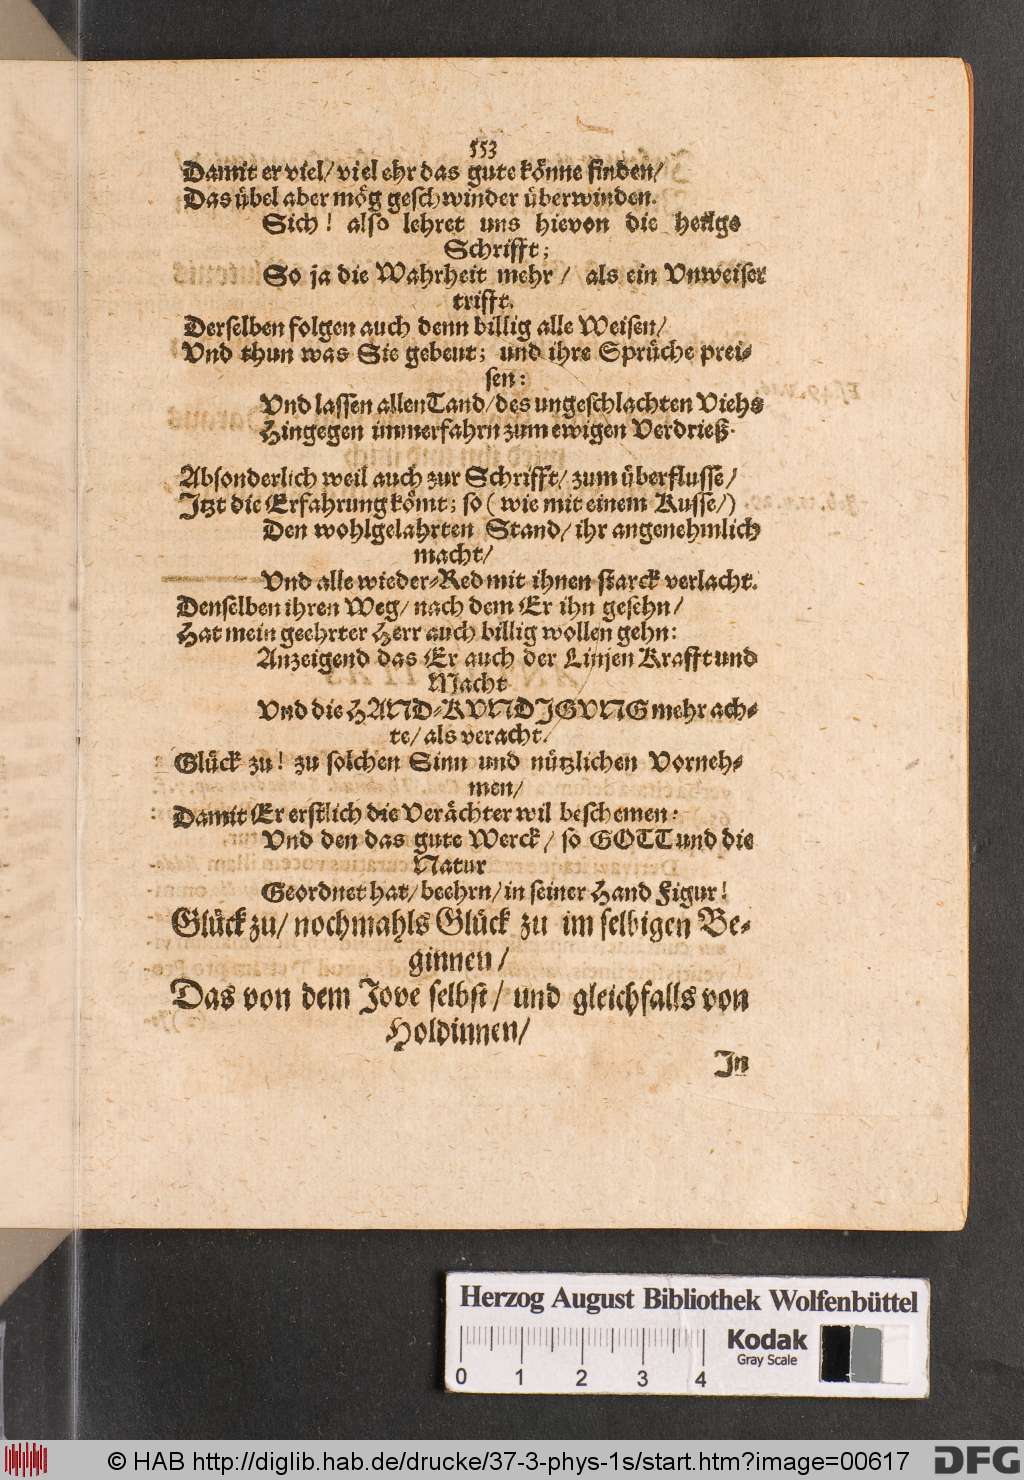 553
Damit er viel/ viel ehr das gute könne finden/
Das übel aber mög geschwinder überwinden.
Sich! also lehret uns hievon die heilge
Schrifft;
So ja die Wahrheit mehr / als ein Vnweiser
trifft.
Derselben folgen auch denn billig alle Weisen/
Vnd thun was Sie gebeut; und ihre Sprüche prei-
sen:
Vnd lassen allen Tand/ des ungeschlachten Viehs
Hingegen immerfahrn zum ewigen Verdrieß.
Absonderlich weil auch zur Schrifft/ zum überflusse/
Jtzt die Erfahrung kömt; so ( wie mit einem Kusse/)
Den wohlgelahrten Stand/ ihr angenehmlich
macht/
Vnd alle wieder-Red mit ihnen starck verlacht.
Denselben ihren Weg/ nach dem Er ihn gesehn/
Hat mein geehrter Herr auch billig wollen gehn:
Anzeigend das Er auch der Linjen Krafft und
Macht
Vnd die HAND-KVNDJGVNG mehr ach-
te/ als veracht.
Glück zu! zu solchen Sinn und nützlichen Vorneh-
men/
Damit Er erstlich die Verächter wil beschemen:
Vnd den das gute Werck/ so GOTT und die
Natur
Geordnet hat/ beehrn/ in seiner Hand Figur!
Glück zu/ nochmahls Glück zu im selbigen Be-
ginnen/
Das von dem Jove selbst/ und gleichfalls von
Holdinnen/
Jn
Herzog August Bibliothek Wolfenbüttel
Kodak
Gray Scale
0 1 2 3 4
© HAB http://diglib.hab.de/drucke/37-3-phys-1s/start.htm?image=00617
DFG